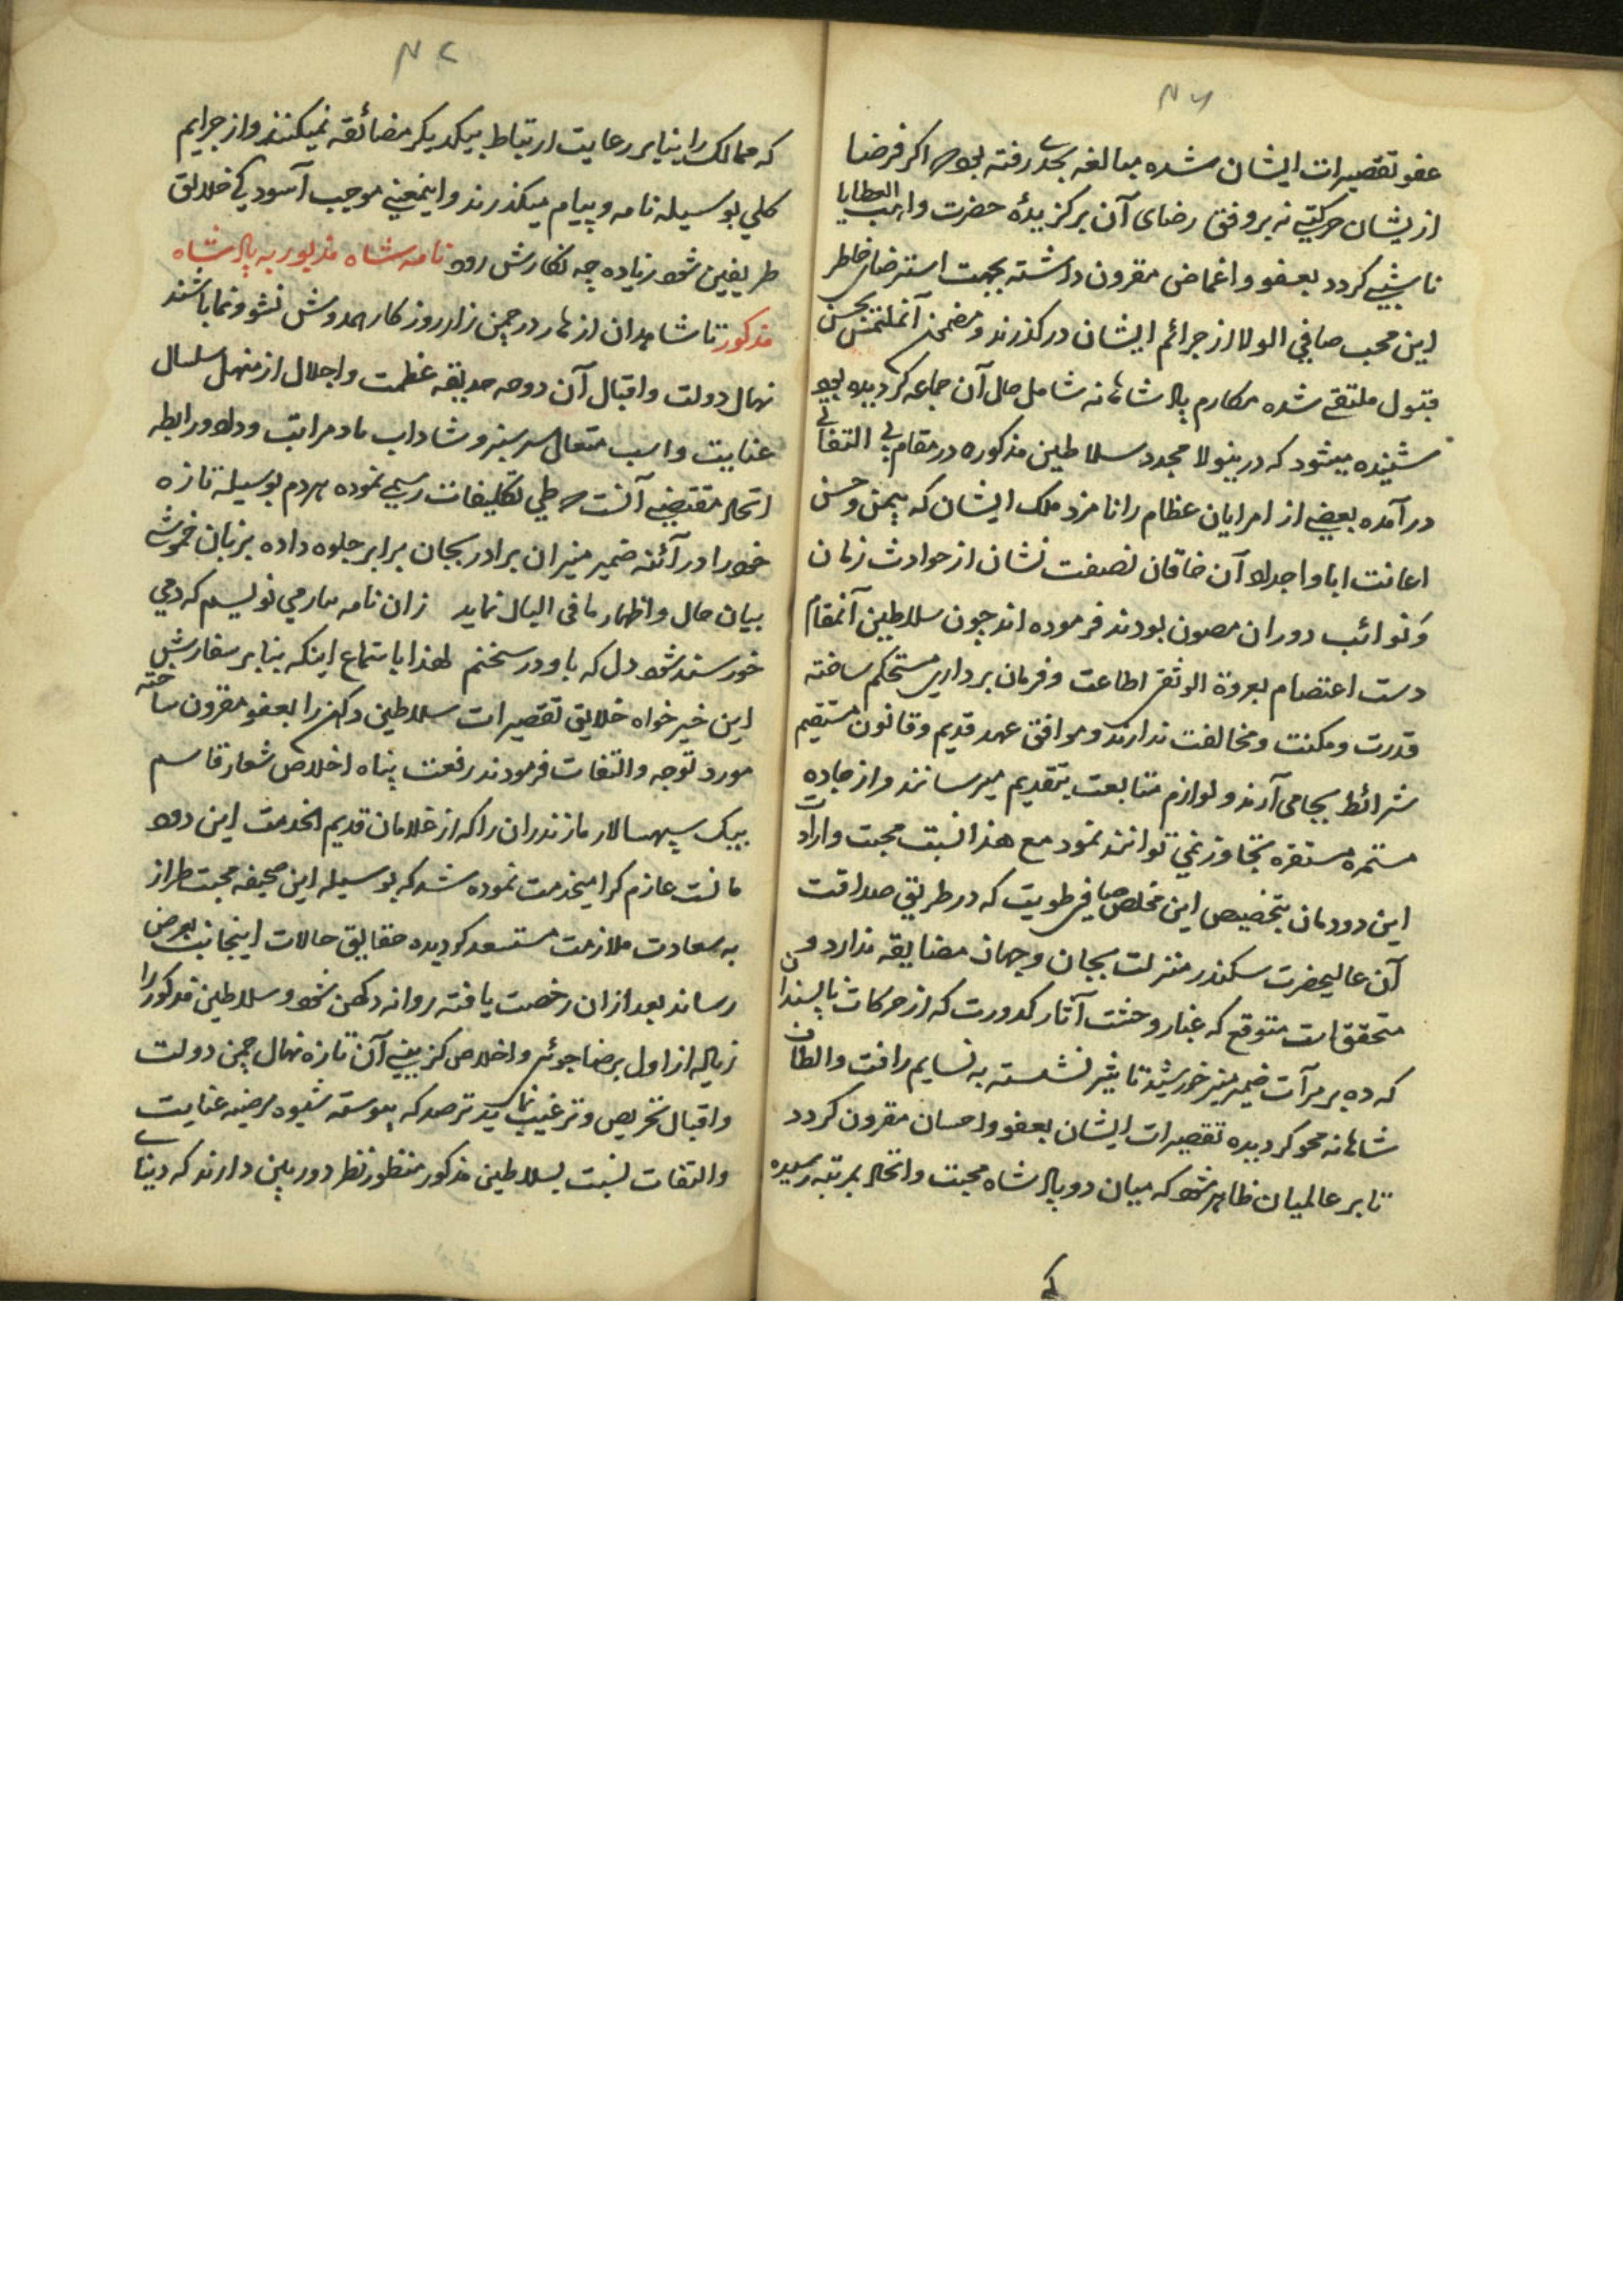 ۴۶
عفو تقصیرات ایشان شده مبالغه بحدے رفته بود اگر فرضا
ازیشان حرکتے نه بر وفق رضای آن برگزیدۀ حضرت واهب العطایا
ناشئے گردد بعفو و اغماض مقرون داشته بجهت استرضای خاطر
این محب صافی الولا از جرائم ایشان درگذرند و مضمن آنملتمس بحسن
قبول ملتقے شده مکارم پادشاهانه شامل حال آن جماعه گردیده بود
شنیده میشود که درینولا مجدد سلاطین مذکوره در مقام بی التفاتے
درآمده بعضے از امرایان عظام را نامزد ملک ایشان که بیمن و حسن
اعانت ابا و اجداد آن خاقان نصفت نشان از حوادث زمان
و نوائب دوران مصون بودند فرموده اند چون سلاطین آنمقام
دست اعتصام بعروة الوثقی اطاعت و فرمان برداری مستحکم ساخته
قدرت و مکنت و مخالفت ندارند و موافق عهد قدیم و قانون مستقیم
شرائط بجا می آرند و لوازم متابعت بتقدیم میرسانند و از جاده
مستمره مستقره تجاوز نمی توانند نمود مع هذا نسبت محبت و ارادت
این دودمان بتخصیص این مخلص صافی طویت که در طریق صداقت
آن عالیحضرت سکندر منزلت بجان و جهان مضایقه ندارد و
متحقق است متوقع که غبار وحشت آثار کدورت که از حرکات ناپسندان
که ده بر مرآت ضمیر منیر خورشید تاثیر نشسته به نسایم رافت و الطاف
شاهانه محو گردیده تقصیرات ایشان بعفو و احسان مقرون گردد
تا بر عالمیان ظاهر شود که میان دو پادشاه محبت و اتحاد بمرتبه رسیده
که
۴۷
که ممالک را بنابر رعایت ارتباط بیکدیگر مضائقه نمیکنند و از جرایم
کلی بوسیله نامه و پیام میگذرند و اینمعنے موجب آسودگی خلایق
طریفین شود زیاده چه نگارش رود نامه شاه مذبور به پادشاه
مذکور تا شاهدان ازهار در چمن زار روزگار همدوش نشو و نما باشند
نهال دولت و اقبال آن دوحه حدیقه عظمت و اجلال از منهل سلسال
عنایت واهب متعال سرسبز و شاداب باد مراتب وداد و رابطه
اتحاد مقتضے آنست که طی تکلیفات رسمے نموده هر دم بوسیله تازه
خود را در آئنه ضمیر منیر ان برادر بجان برابر جلوه داده بزبان خموشے
بیان حال و اظهار ما فی البال نماید زان نامه بیار می نویسم که دمی
خورسند شود دل که باو در سخنم لهذا باستماع اینکه بنابر سفارش
این خیر خواه خلایق تقصیرات سلاطین دکهن را بعفو مقرون ساخته
مورد توجه و التفات فرمودند رفعت پناه اخلاص شعار قاسم
بیک سپهسالار مازندران را که از غلامان قدیم الخدمت این دود
مانست عازم گرامیخدمت نموده شد که بوسیله این صحیفه محبت طراز
به سعادت ملازمت مستسعد گردیده حقایق حالات اینجانب بعرض
رساند بعد ازان رخصت یافته روانه دکهن شود و سلاطین مذکور را
زیاده از اول برضا جوئی و اخلاص گزینے آن تازه نهال چمن دولت
و اقبال تحریص و ترغیب نماید ترصد که پیوسته شیوه مرضیه عنایت
و التفات نسبت بسلاطین مذکور منظور نظر دوربین دارند که دنیاے